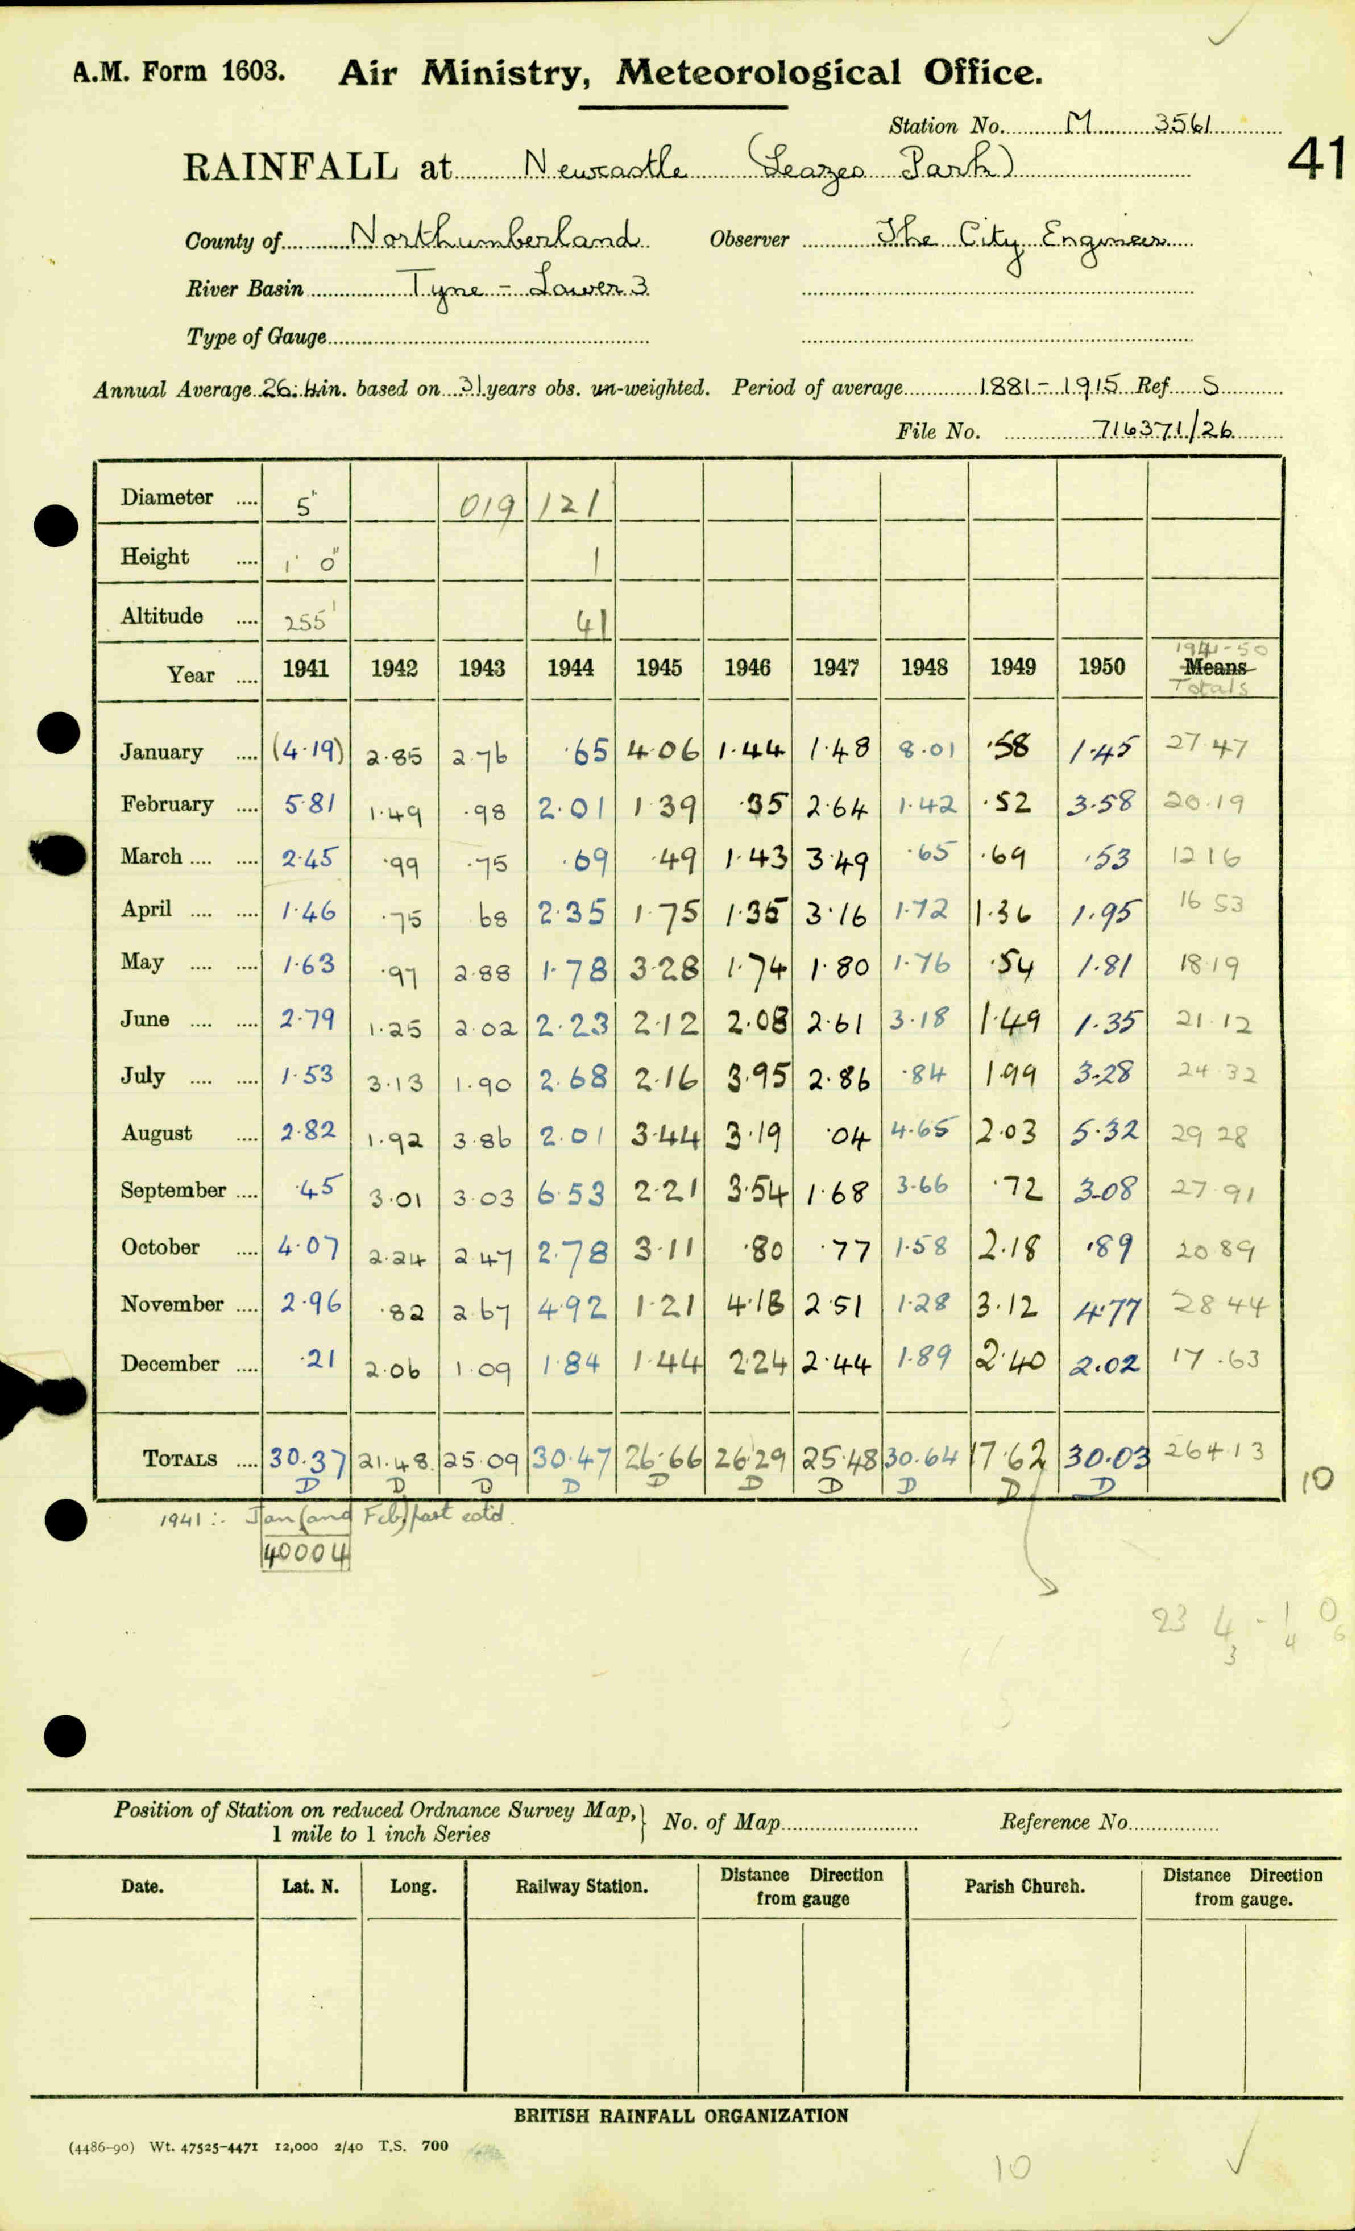 A.M. Form 1603. Air Ministry, Meteorological Office.
Station No. M 3561
41
RAINFALL at Newcastle (Leazes Park)
County of Northumberland Observer The City Engineer
River Basin Tyne - Lower 3
Type of Gauge
Annual Average 26.4 in. based on 31 years obs. un-weighted. Period of average 1881-1915 Ref S
File No. 716371/26
Diameter .... 5" 019 121
Height .... 1' 0" 1
Altitude .... 255' 41
1941-50
Year .... 1941 1942 1943 1944 1945 1946 1947 1948 1949 1950 Means
Totals
January .... (4.19) 2.85 2.76 .65 4.06 1.44 1.48 8.01 .58 1.45 27 47
February .... 5.81 1.49 .98 2.01 1.39 .35 2.64 1.42 .52 3.58 20.19
March .... .... 2.45 .99 .75 .69 .49 1.43 3.49 .65 .69 .53 12 16
April .... .... 1.46 .75 68 2.35 1.75 1.35 3.16 1.72 1.36 1.95 16 53
May .... .... 1.63 .97 2.88 1.78 3.28 1.74 1.80 1.76 .54 1.81 18.19
June .... .... 2.79 1.25 2.02 2.23 2.12 2.08 2.61 3.18 1.49 1.35 21.12
July .... .... 1.53 3.13 1.90 2.68 2.16 3.95 2.86 .84 1.99 3.28 24.32
August .... 2.82 1.92 3.86 2.01 3.44 3.19 .04 4.65 2.03 5.32 29 28
September .... .45 3.01 3.03 6.53 2.21 3.54 1.68 3.66 .72 3.08 27.91
October .... 4.07 2.24 2.47 2.78 3.11 .80 .77 1.58 2.18 .89 20 89
November .... 2.96 .82 2.67 4.92 1.21 4.18 2.51 1.28 3.12 4.77 28 44
December .... .21 2.06 1.09 1.84 1.44 2.24 2.44 1.89 2.40 2.02 17.63
TOTALS .... 30.37 21.48 25.09 30.47 26.66 26.29 25.48 30.64 17.62 30.03 264.13
D D D D D D D D D D
10
1941:- Jan (and Feb) part estd.
40004
23 4 - 1 0
3 4 6
Position of Station on reduced Ordnance Survey Map, } No. of Map Reference No.
1 mile to 1 inch Series
Date. Lat. N. Long. Railway Station. Distance Direction from gauge Parish Church. Distance Direction from gauge.
BRITISH RAINFALL ORGANIZATION
(4486-90) Wt. 47525-4471 12,000 2/40 T.S. 700
10